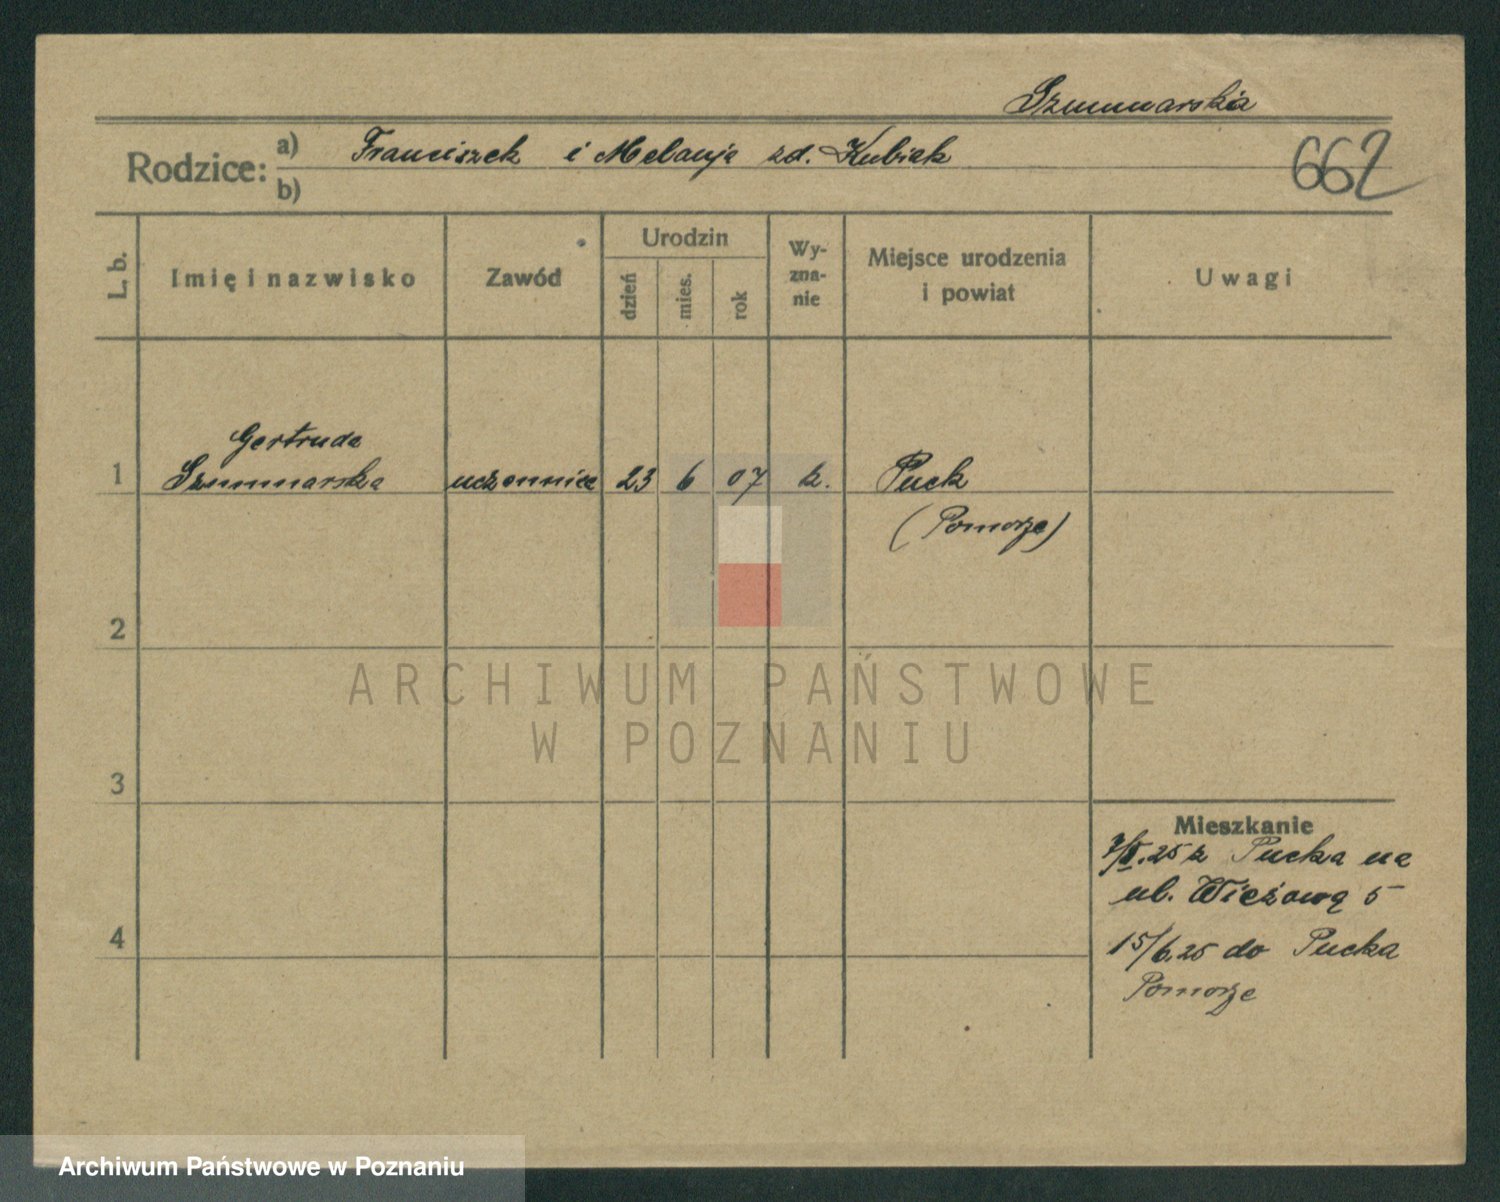 Szummarska
Rodzice: a) Franciszek i Melanja zd. Kubiak
b)
662
L. b.
Imię i nazwisko
Zawód
Urodzin
dzień
mies.
rok
Wy-
zna-
nie
Miejsce urodzenia
i powiat
Uwagi
Gertruda
1 Szummarska uczennica 23 6 07 k. Puck
(Pomorze)
2
ARCHIWUM PAŃSTWOWE
W POZNANIU
3
Mieszkanie
.25 z Pucka na
ul. Wieżową 5
4
15/6.25 do Pucka
Pomorze
Archiwum Państwowe w Poznaniu